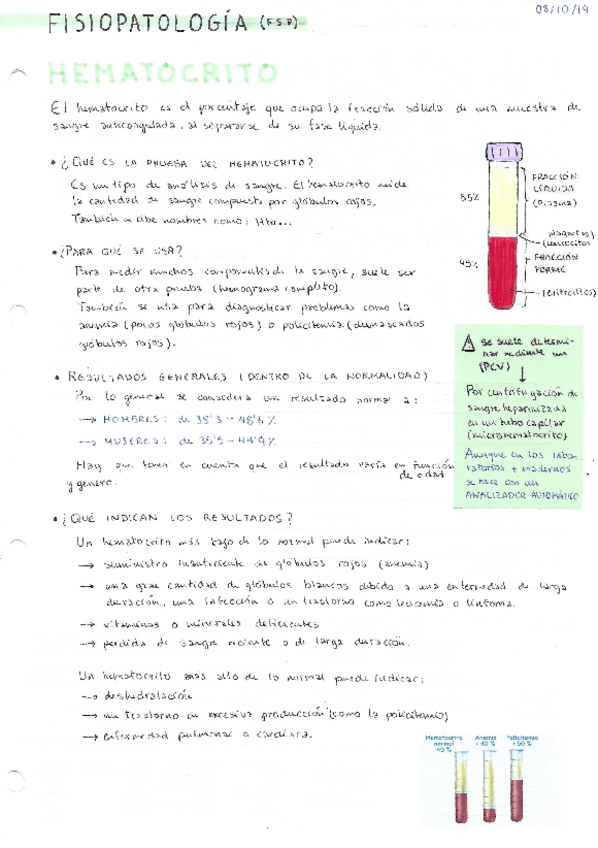 08/10/19
FISIOPATOLOGÍA (F.S.P)
HEMATOCRITO
El hematocrito es el porcentaje que ocupa la fracción sólida de una muestra de
sangre anticoagulada, al separarse de su fase líquida.
• ¿QUÉ ES LA PRUEBA DEL HEMATOCRITO?
Es un tipo de análisis de sangre. El hematocrito mide
la cantidad de sangre compuesta por glóbulos rojos.
También recibe nombres como: Hto...
• ¿PARA QUÉ SE USA?
Para medir muchos componentes de la sangre, suele ser
parte de otra prueba (hemograma completo).
También se usa para diagnosticar problemas como la
anemia (pocos glóbulos rojos) o policitemia (demasiados
glóbulos rojos).
55%
45%
FRACCIÓN
LÍQUIDA
(plasma)
plaquetas y
leucocitos
FRACCIÓN
FORME
(eritrocitos)
• RESULTADOS GENERALES (DENTRO DE LA NORMALIDAD)
Por lo general se considera un resultado normal a:
→ HOMBRES: de 38'3 – 48'6 %
→ MUJERES: de 35'5 – 44'9 %
Hay que tener en cuenta que el resultado varía en función
de edad
y genero.
⚠ se suele determi-
nar mediante un
(PCV)
↓
Por centrifugación de
sangre heparinizada
en un tubo capilar
(microhematocrito)
Aunque en los labo-
ratorios + modernos
se hace con un
ANALIZADOR AUTOMÁTICO
• ¿QUÉ INDICAN LOS RESULTADOS?
Un hematocrito más bajo de lo normal puede indicar:
→ suministro insuficiente de glóbulos rojos (anemia)
→ una gran cantidad de glóbulos blancos debido a una enfermedad de larga
duración, una infección o un trastorno como leucemia o linfoma.
→ vitaminas o minerales deficientes
→ perdida de sangre reciente o de larga duración.
Un hematocrito más alto de lo normal puede indicar:
→ deshidratación
→ un trastorno de excesiva producción (como la policitemia)
→ enfermedad pulmonar o cardíaca.
Hematocrito
normal
45 %
Anemia
< 40 %
Policitemia
> 50 %